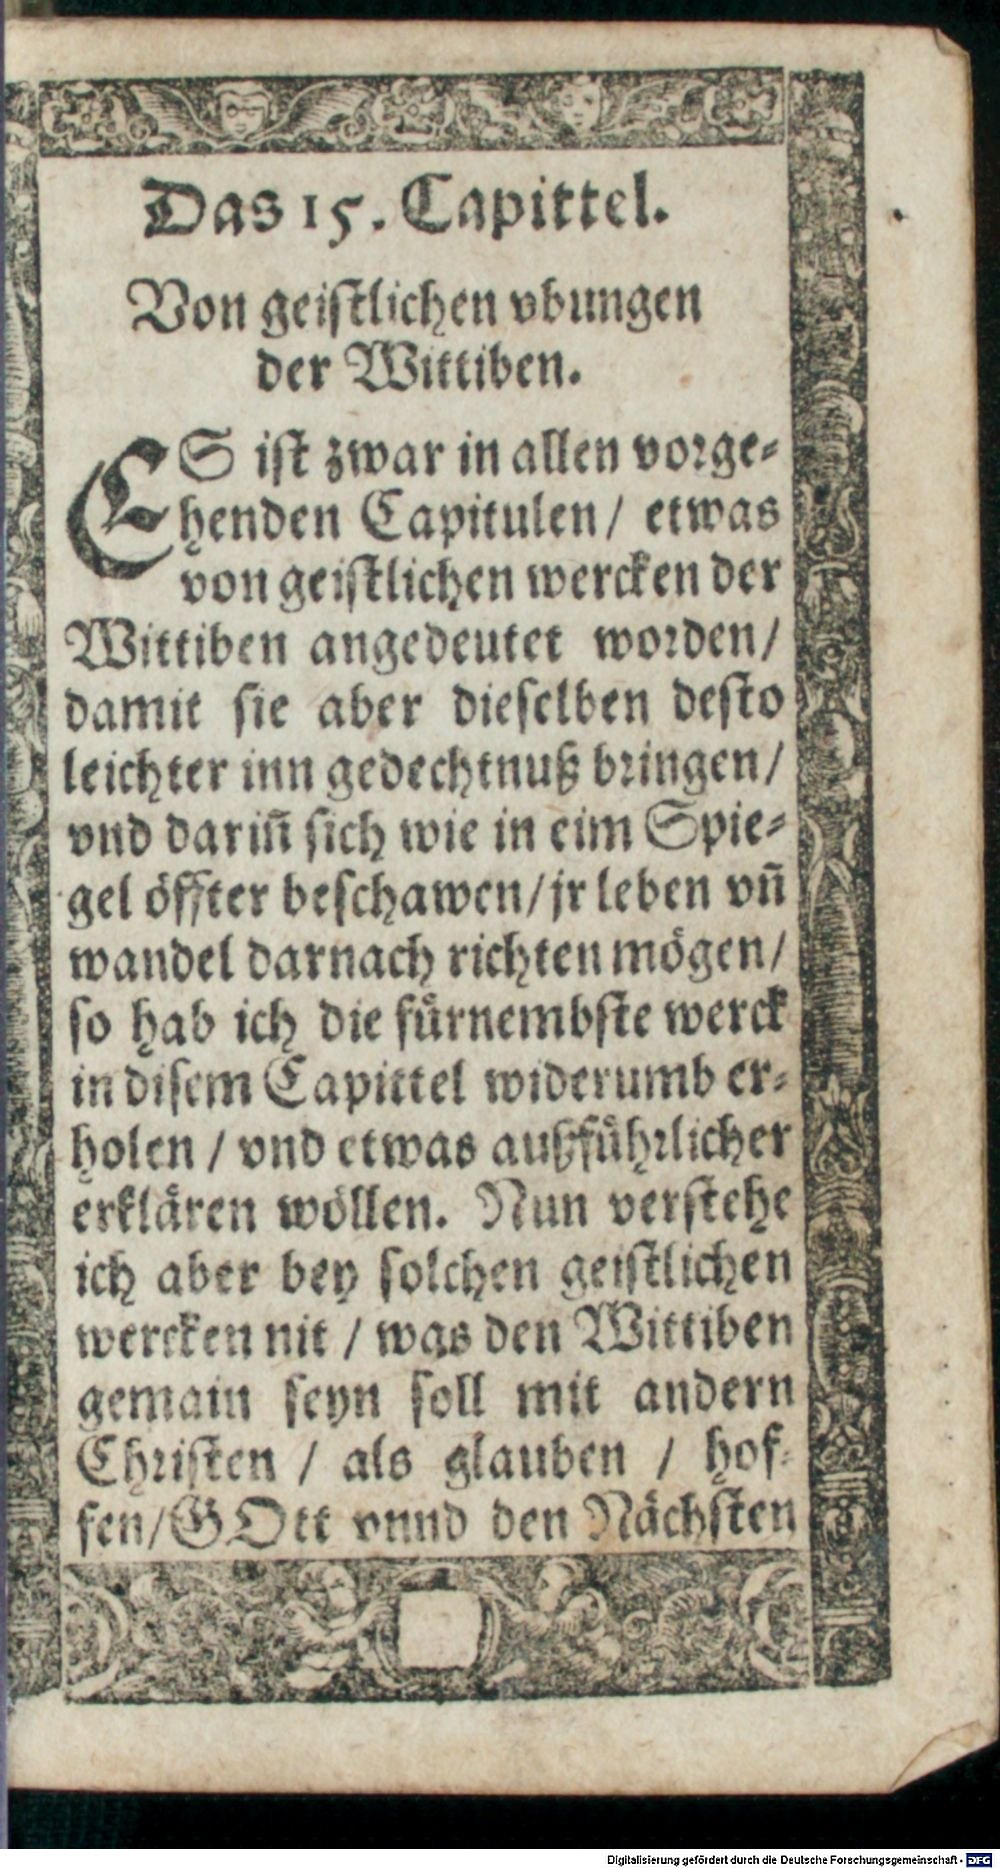 Das 15. Capittel.
Von geistlichen vbungen
der Wittiben.
ES ist zwar in allen vorge-
henden Capitulen / etwas
von geistlichen wercken der
Wittiben angedeutet worden /
damit sie aber dieselben desto
leichter inn gedechtnuß bringen /
vnd dariñ sich wie in eim Spie-
gel öffter beschawen / jr leben vñ
wandel darnach richten mögen /
so hab ich die fürnembste werck
in disem Capittel widerumb er-
holen / vnd etwas außführlicher
erklären wöllen. Nun verstehe
ich aber bey solchen geistlichen
wercken nit / was den Wittiben
gemain seyn soll mit andern
Christen / als glauben / hof-
fen / GOtt vnnd den Nächsten
Digitalisierung gefördert durch die Deutsche Forschungsgemeinschaft - DFG